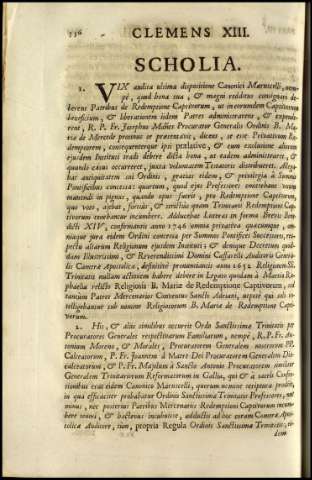 336 CLEMENS XIII.
SCHOLIA.
1. VIX audita ultima dispositione Canonici Marnicelli, nem-
pè, quod bona sua, & magni redditus consignari de-
berent Patribus de Redemptione Captivorum, ut in eorundem Captivorum
beneficium, & liberationem iidem Patres administrarent, & expende-
rent, R. P. Fr. Josephus Procurator Generalis Ordinis B. Ma-
riæ de Mercede protinus se præsentavit, dicens, se esse Privativum Re-
demptorem, consequenterque ipsi prælative, & cum exclusione aliorum
ejusdem Instituti tradi debere dicta bona, ut eadem administraret, &
quandò casus occurreret, juxta voluntatem Testatoris distribueret. Allega-
bat antiquitatem sui Ordinis, gratias eidem, & privilegia à Summis
Pontificibus concessa: quartum, quod ejus Professores emittebant votum
manendi in pignus, quando opus fuerit, pro Redemptione Captivorum,
quo voto, ajebat, forsàn, & certiùs quàm Trinitariis Redemptioni Cap-
tivorum tenebantur incumbere. Adducebat Litteras in forma Brevis Bene-
dicti XIV, confirmantis anno 1746 omnia privativa quæcumque, om-
niaque jura eidem Ordini concessa per Summos Pontifices Successores, res-
pectu aliarum Religionum ejusdem Instituti: & denique Decretum quod-
dam Illustrissimi, & Reverendissimi Domini Auditoris Genera-
lis Cameræ Apostolicæ, definitivè pronunciantis anno 1652 Religionem SS.
Trinitatis nullam actionem habere debere in Legato quodam à Maria Ra-
phaëla relicto Religionis B. Mariæ de Redemptione Captivorum, ad-
Patres Mercenarios Conventus Sancti Adriani, utpotè qui solo in-
telligebantur sub nomine Religiosorum B. Mariæ de Redemptione Capti-
vorum.
2. His, & aliis similibus occurrit Ordo Sanctissimæ Trinitatis per
Procuratores Generales respectivarum Familiarum, nempè, R. P. Fr. An-
tonium Moreno, & Morales, Procuratorem Generalem nostrorum PP.
Calceatorum, P. Fr. Joannem à Matre Dei Procuratorem Generalem Dis-
calceatorum, & P. Fr. à Sancto Antonio Procuratorem similiter
Generalem Trinitariorum Reformatorum in Gallia, qui & à sacris Confes-
sionibus erat eidem Canonico Marnicelli, quorum nomine scriptura prodiit,
in qua efficaciter probabatur Ordinis Sanctissimæ Trinitatis Professores, nul-
lo minus, nec posterius Patribus Mercenariis Redemptioni Captivorum incum-
bere teneri, & hactenus incubuisse, adductis ad hoc coram Cameræ Apos-
tolicæ Auditore, tùm, propria Regula Ordinis Sanctissimæ Trinitatis, ei-
dem